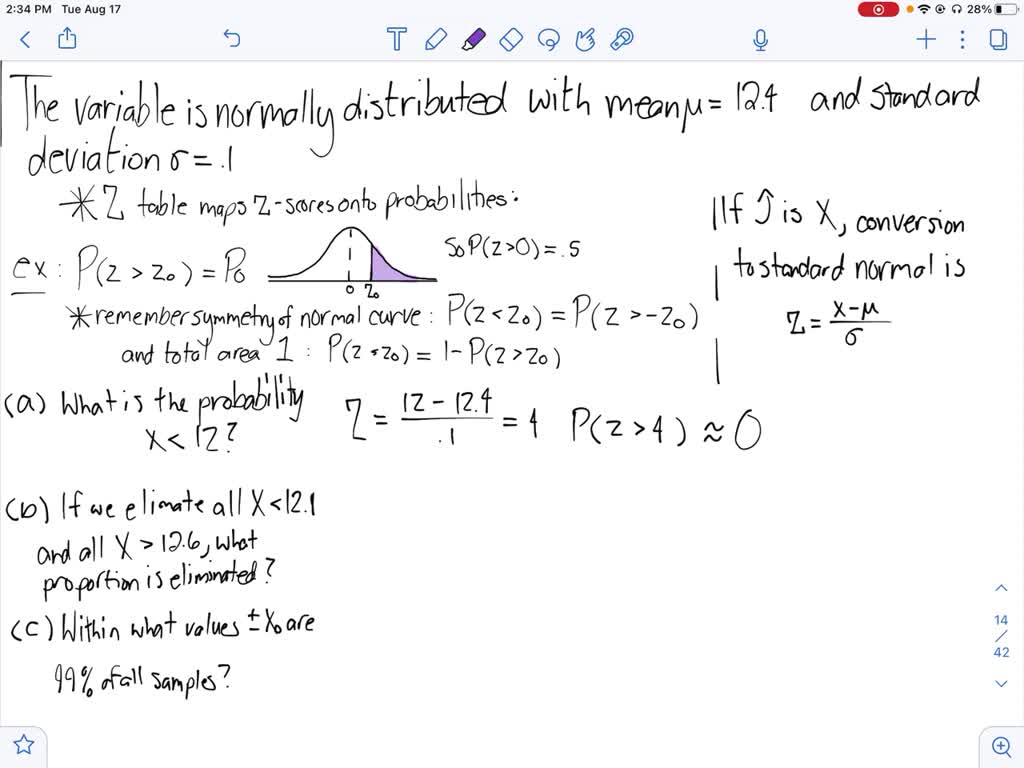 2:34 PM Tue Aug 17
28%
The variable is normally distributed with mean μ = 12.4 and standard
deviation σ = .1
* Z table maps Z-scores onto probabilities:
ex: P(z > z₀) = P₀
0 z₀
So P(z>0) = .5
* remember symmetry of normal curve: P(z < z₀) = P(z > -z₀)
and total area 1: P(z < z₀) = 1 - P(z > z₀)
If ↑ is X, conversion
to standard normal is
Z = (x-μ)/σ
(a) What is the probability
X < 12?
Z = (12 - 12.4)/.1 = 4 P(z > 4) ≈ 0
(b) If we elimate all X < 12.1
and all X > 12.6, what
proportion is eliminated?
(c) Within what values ± X₀ are
99% of all samples?
14
/
42